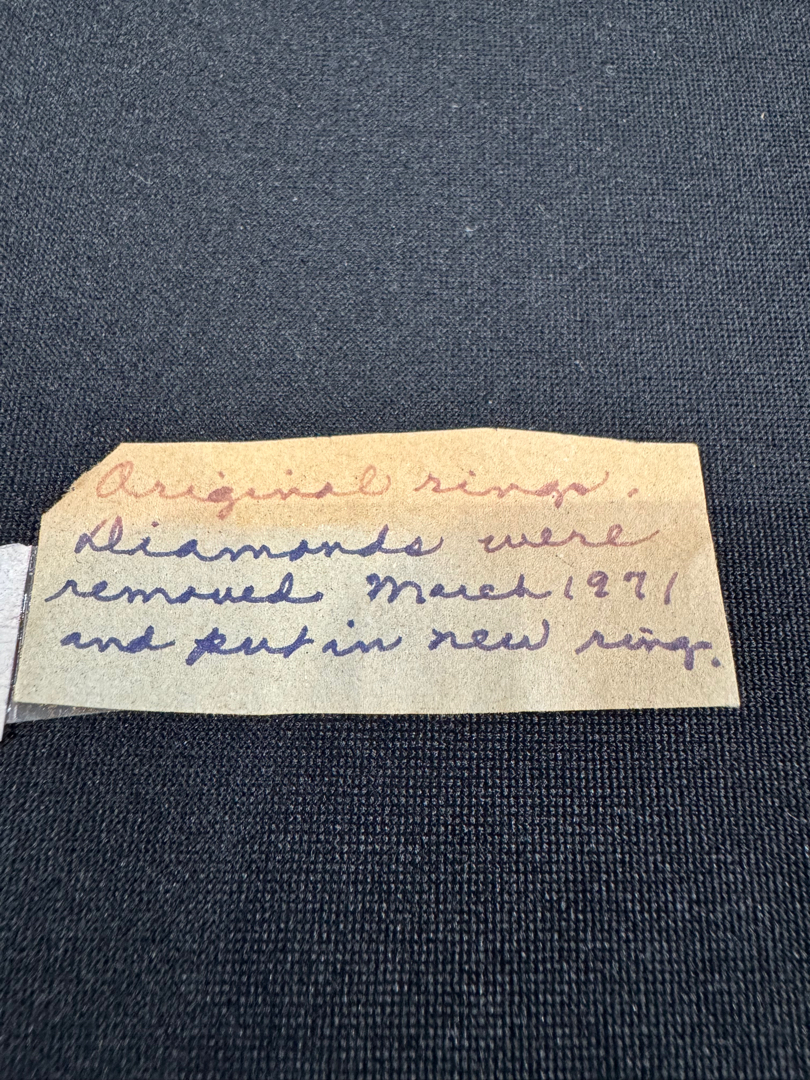 Original rings.
Diamonds were
removed March 1971
and put in new ring.